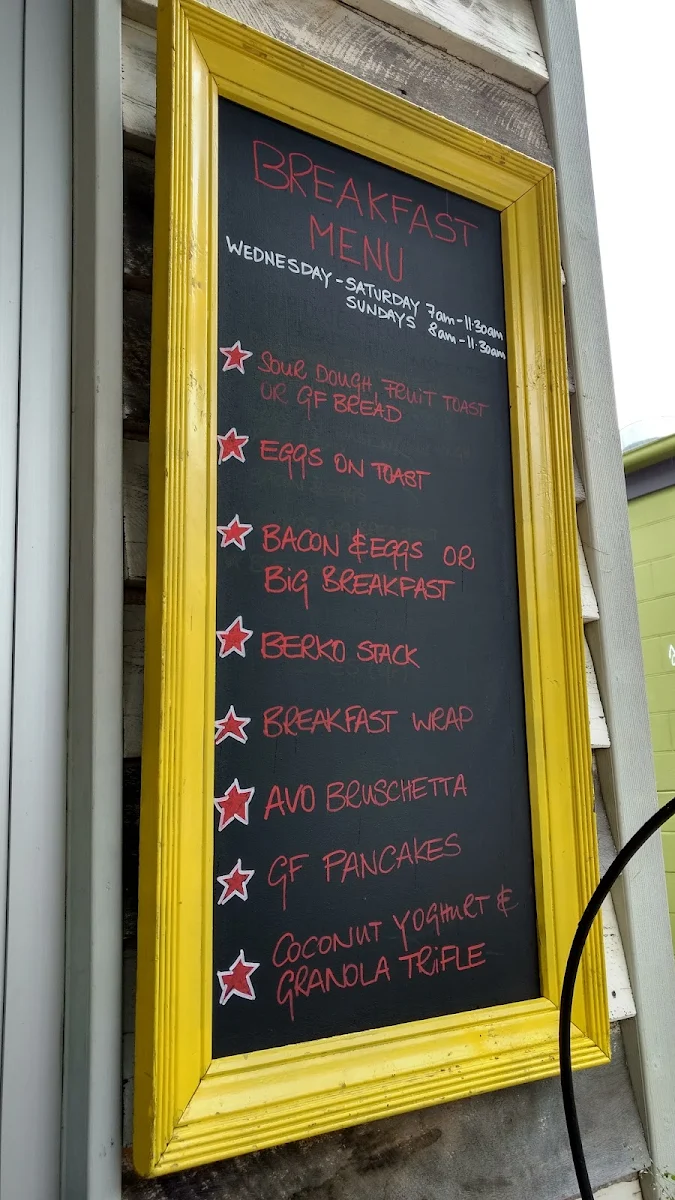 BREAKFAST
MENU
WEDNESDAY - SATURDAY 7am - 11.30am
SUNDAYS 8am - 11.30am
SOUR DOUGH, FRUIT TOAST
OR GF BREAD
EGGS ON TOAST
BACON & EGGS OR
BIG BREAKFAST
BERKO STACK
BREAKFAST WRAP
AVO BRUSCHETTA
GF PANCAKES
COCONUT YOGHURT &
GRANOLA TRIFLE